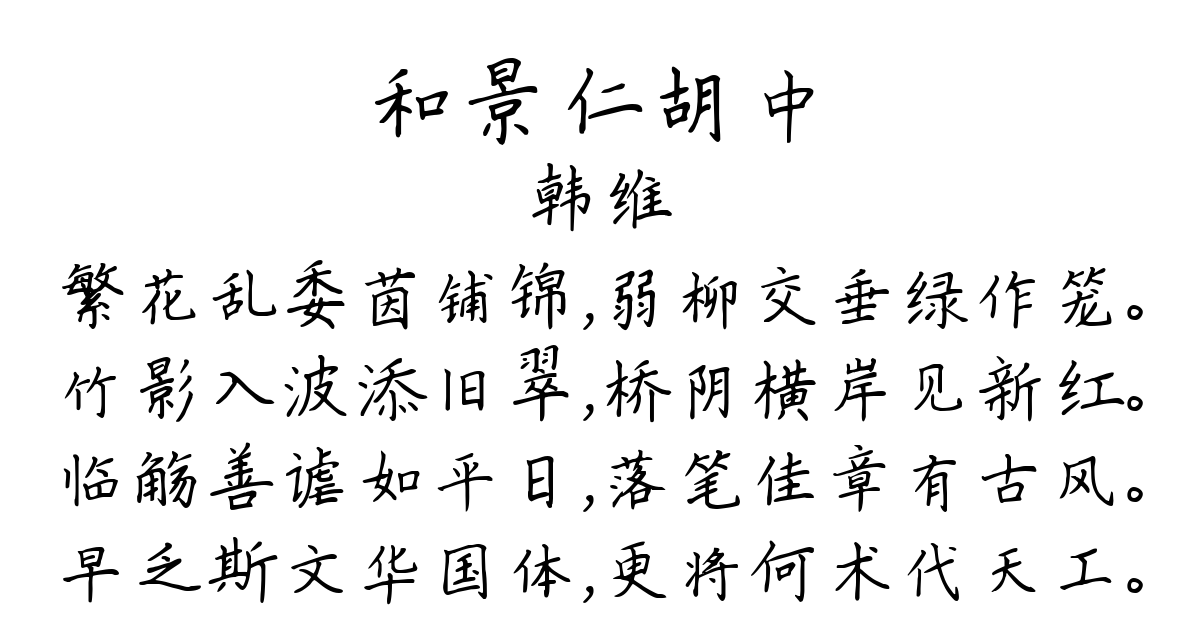 和景仁胡中
韩维
繁花乱委茵铺锦,弱柳交垂绿作笼。
竹影入波添旧翠,桥阴横岸见新红。
临觞善谑如平日,落笔佳章有古风。
早乏斯文华国体,更将何术代天工。